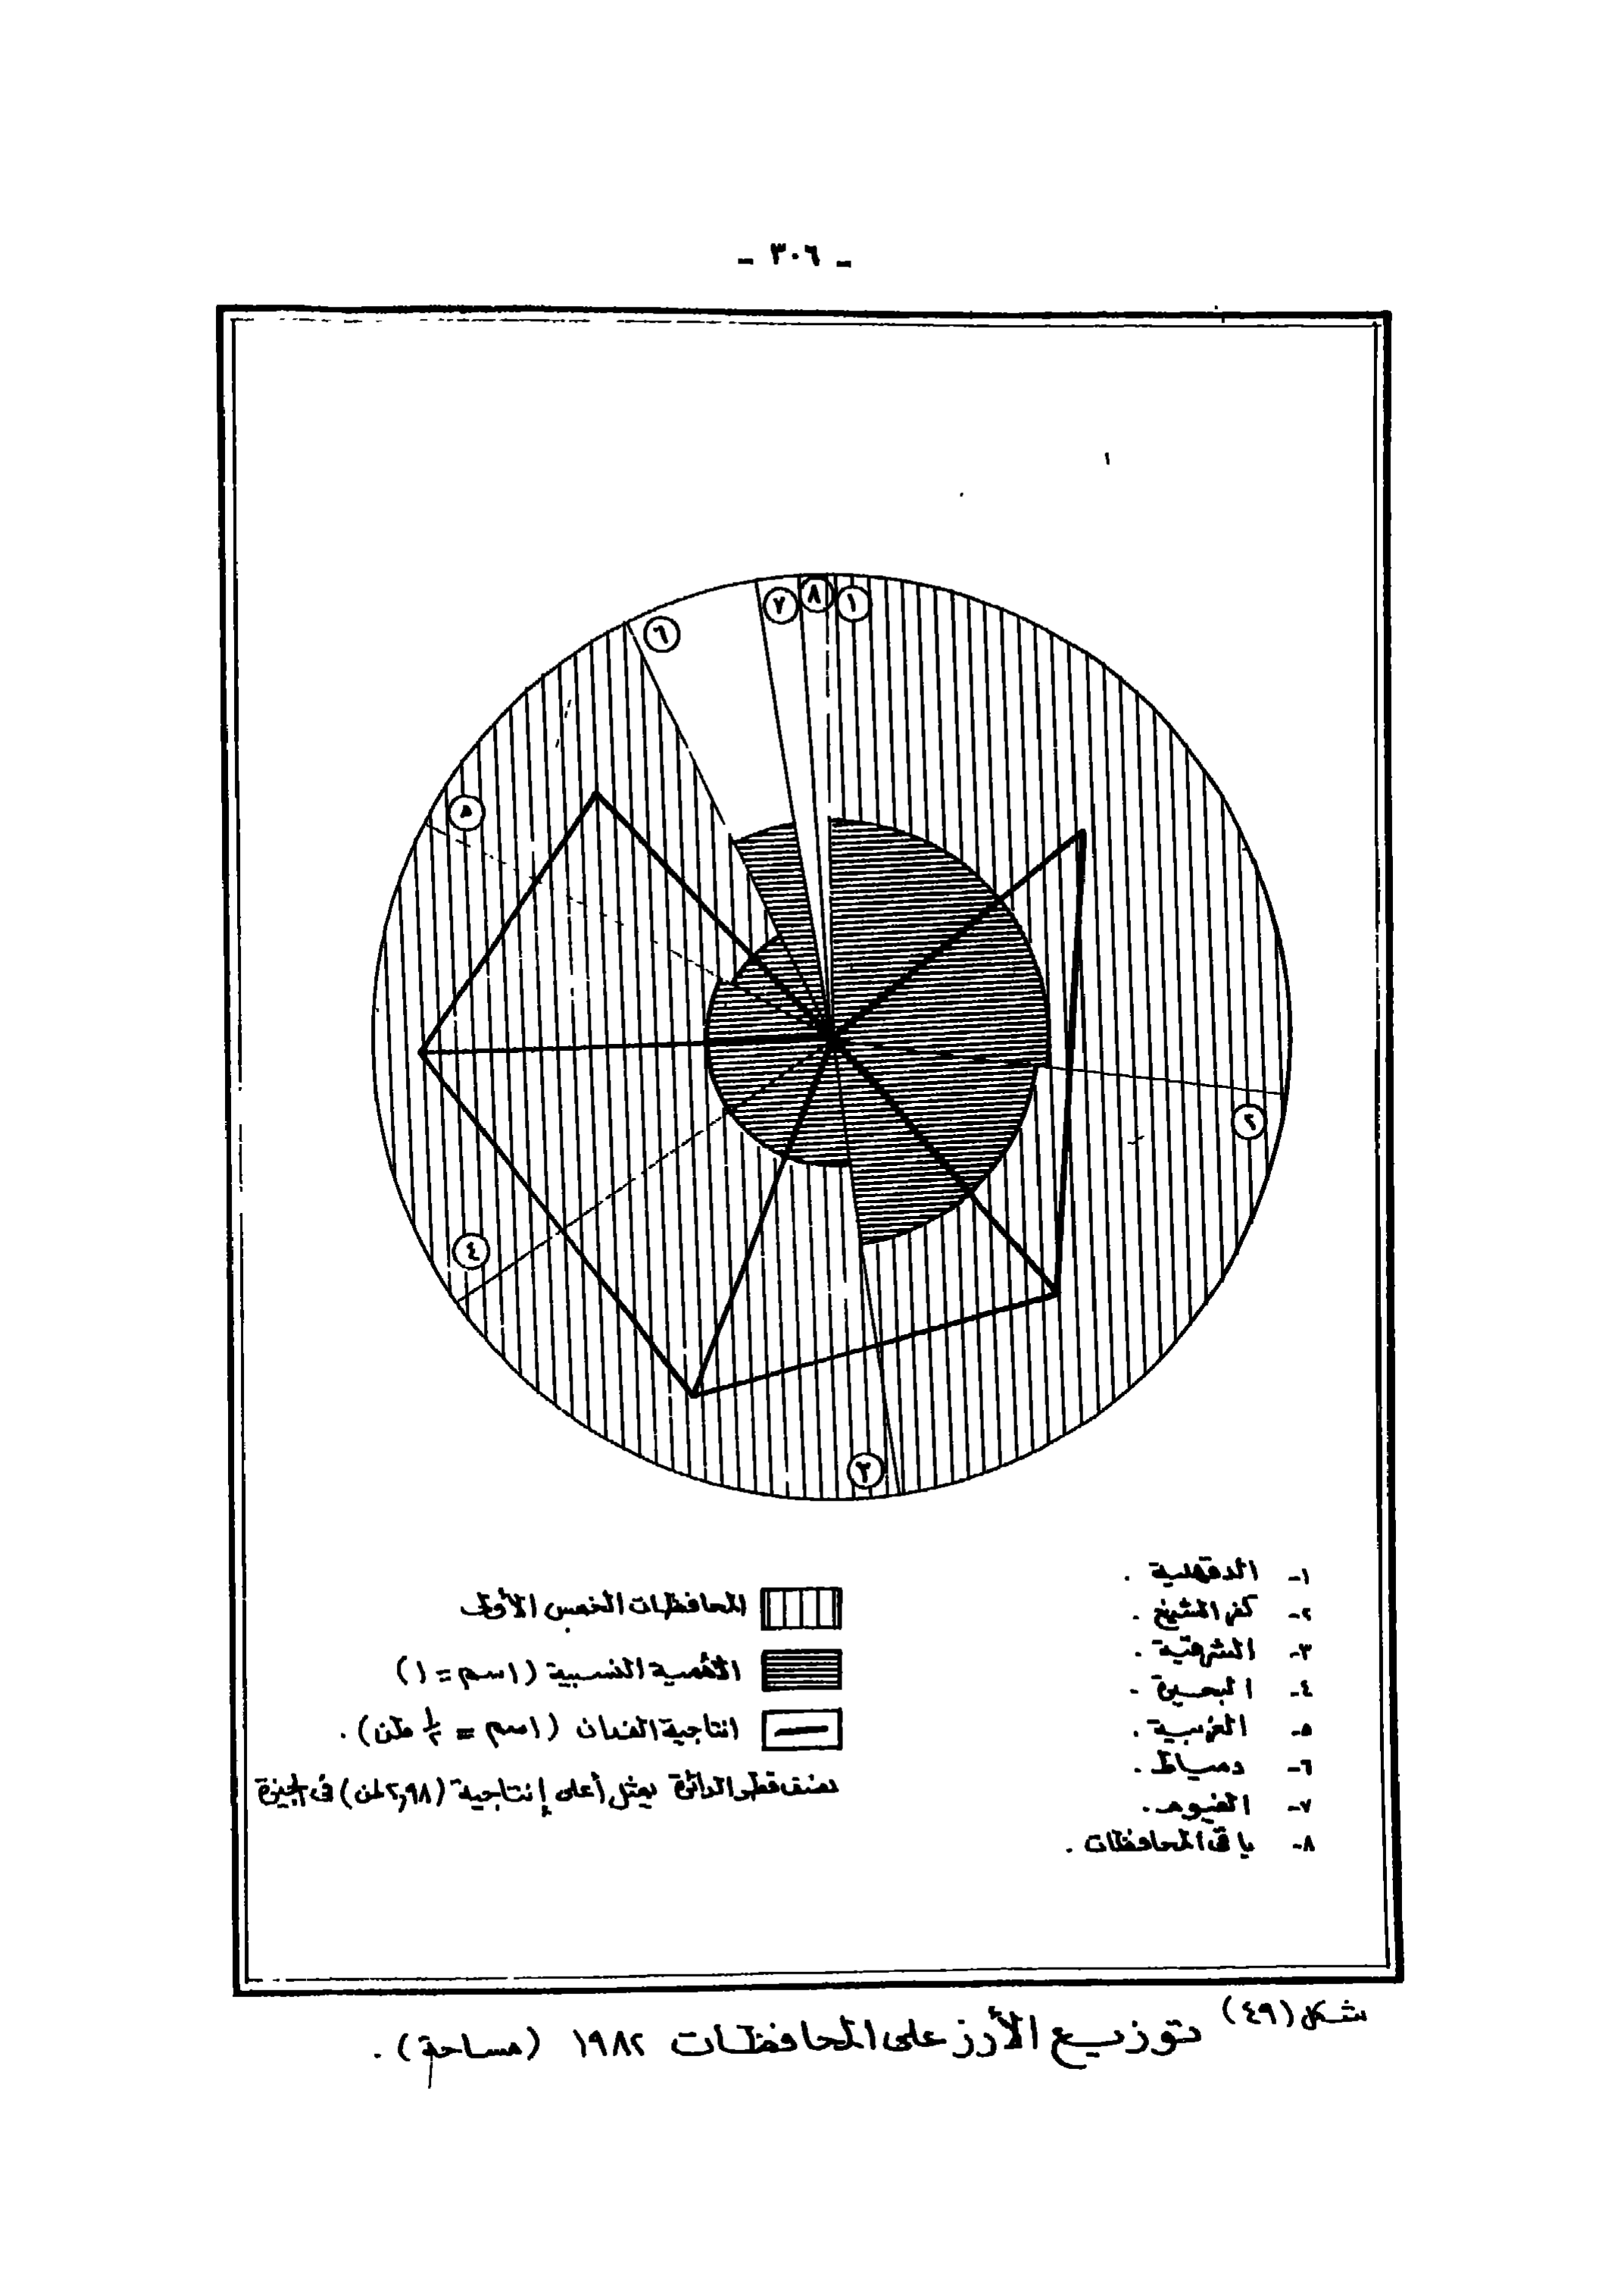 - ٣٠٦ -
٧ ٨ ١
٦
٥
٢
٤
٣
١- الدقهلية .
٢- كفر الشيخ .
٣- الشرقية .
٤- البحيرة .
٥- الغربية .
٦- دمياط .
٧- الفيوم .
٨- باقى المحافظات .
المحافظات الخمس الأولى
الأهمية النسبية (١سم = ١)
انتاجية الفدان (١سم = ١/٢ طن) .
نصف قطر الدائرة يمثل أعلى إنتاجية (٢,٩٨ طن) فى الجيزة
شكل (٤٩) توزيع الأرز على المحافظات ١٩٨٢ (مساحة) .